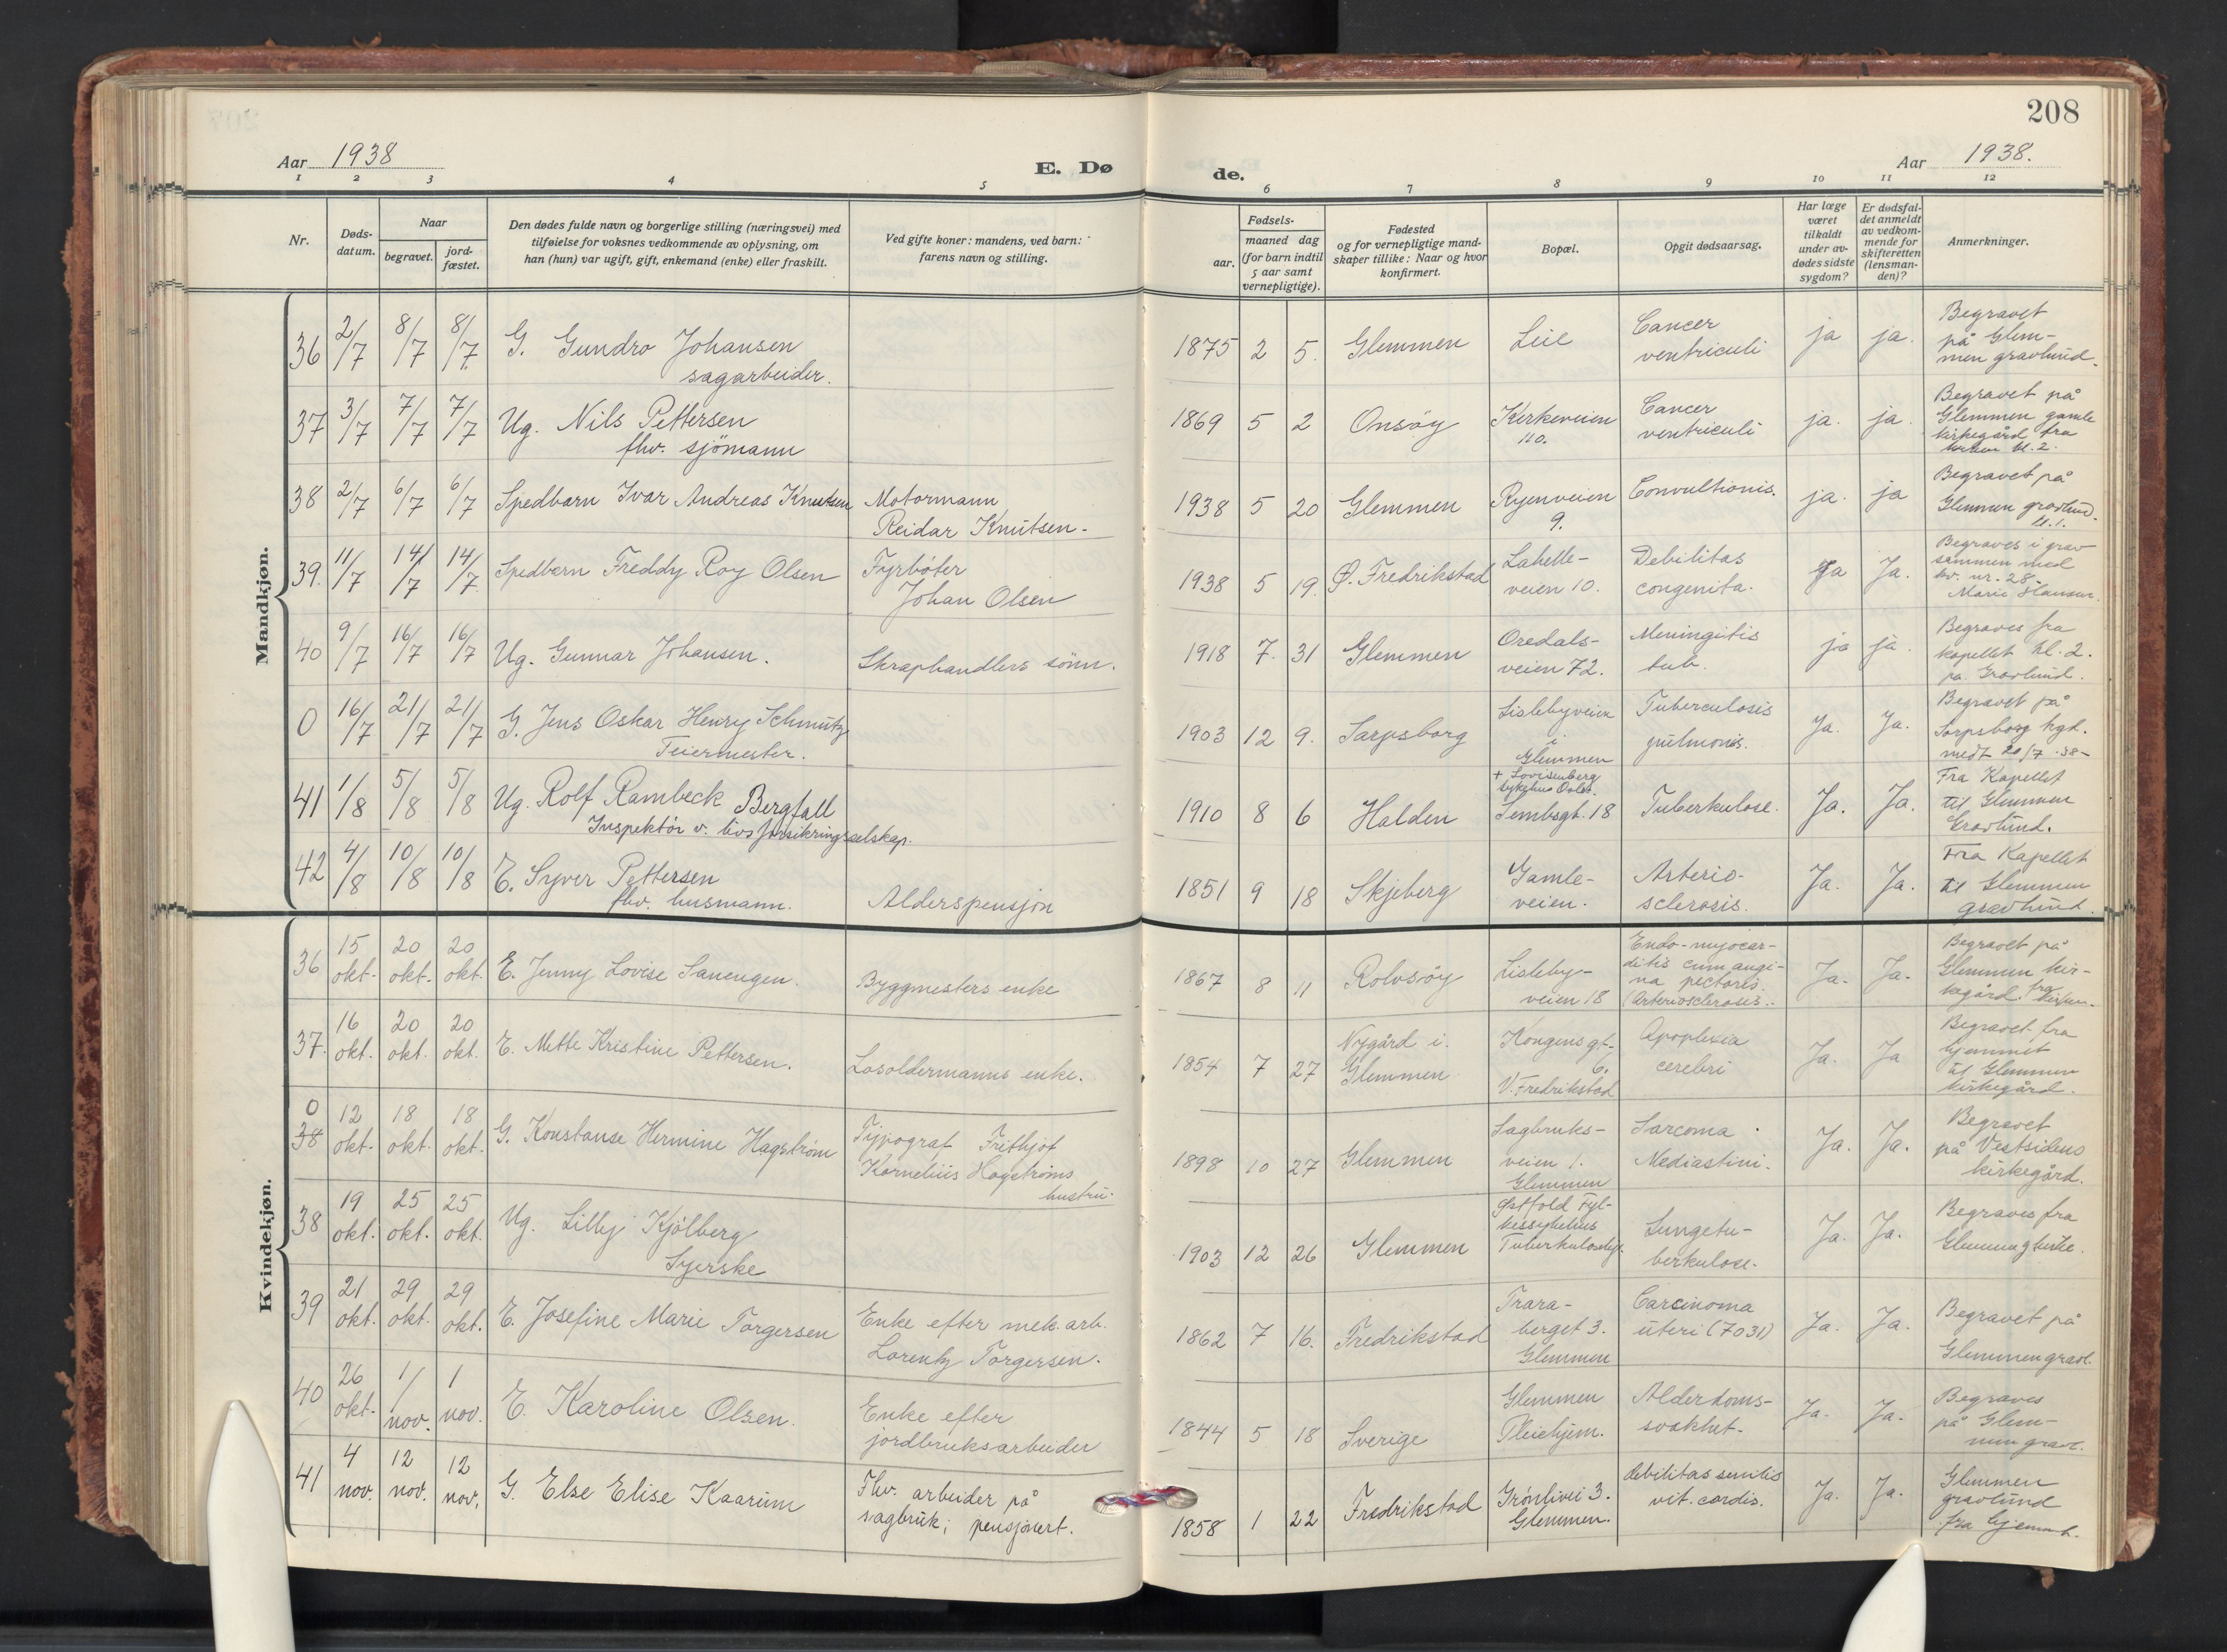 208
Aar 1938
E. Dø
de.
Aar 1938.
1 2 3 4 5 6 7 8 9 10 11 12
Nr.
Døds-
datum.
Naar
begravet.
jord-
fæstet.
Den dødes fulde navn og borgerlige stilling (næringsvei) med
tilføielse for voksnes vedkommende av oplysning, om
han (hun) var ugift, gift, enkemand (enke) eller fraskilt.
Ved gifte koner: mandens, ved barn:
farens navn og stilling.
Fødsels-
aar.
maaned dag
(for barn indtil
5 aar samt
vernepligtige).
Fødested
og for vernepligtige mand-
skaper tillike: Naar og hvor
konfirmert.
Bopæl.
Opgit dødsaarsag.
Har læge
været
tilkaldt
under av-
dødes sidste
sygdom?
Er dødsfal-
det anmeldt
av vedkom-
mende for
skifteretten
(lensman-
den)?
Anmerkninger.
Mandkjøn.
36 2/7 8/7 8/7. G. Gundro Johansen
sagarbeider.
1875 2 5. Glemmen Leie
Cancer
ventriculi
ja ja.
Begravet
på Glem-
men gravlund.
37 3/7 7/7 7/7 Ug. Nils Pettersen
fhv. sjömann
1869 5 2 Onsøy
Kirkeveien
110.
Cancer
ventriculi
ja. ja
Begravet på
Glemmen gamle
kirkegård fra
kl. 2.
38 2/7 6/7 6/7 Spedbarn Ivar Andreas Knutsen
Motormann
Reidar Knutsen-
1938 5 20 Glemmen
Ryenveien
9.
Convultionis.
ja. ja
Begravet på
Glemmen gravlund.
kl. 1.
39. 11/7 14/7 14/7. Spedbarn Freddy Roy Olsen
Fyrbøter
Johan Olsen
1938 5 19. Ø. Fredrikstad
Lahelle-
veien 10.
Debilitas
congenita.
Ja Ja.
Begraves i grav
sammen med
kv. nr. 28.
Marie Hansen.
40 9/7 16/7 16/7 Ug. Gunnar Johansen.
Skraphandlers sönn.
1918 7. 31 Glemmen
Oredals-
veien 72.
Meningitis
tub.
ja ja.
Begraves fra
kapellet kl. 2.
på Gravlund.
0 16/7 21/7 21/7 G. Jens Oskar Henry Schmutz
Feiermester.
1903 12 9. Sarpsborg
Lislebyveien
i
Glemmen
Tuberculosis
pulmonis.
Ja. Ja.
Begravet på
Sarpsborg kgk.
20/7 -38-
41 1/8 5/8 5/8 Ug. Rolf Rambeck Bergfall
Inspektör v. livsforsikringsselskap.
1910 8 6 Halden
+ Lovisenberg
sykehus Oslo.
Lembsgt. 18
Tuberkulose.
Ja. Ja.
Fra Kapellet
til Glemmen
Gravlund.
42 4/8 10/8 10/8 E. Syver Pettersen
fhv. husmann.
Alderspensjon
1851 9 18 Skjeberg
Gamle-
veien.
Arterio-
sclerosis.
Ja. Ja.
Fra Kapellet
til Glemmen
gravlund.
Kvindekjøn.
36 15 okt. 20 okt. 20 okt. E. Jenny Lovise Sanengen.
Byggmesters enke
1867 8 11 Rolvsøy
Lisleby-
veien 18
Endo-myocar-
ditis cum angi-
na pectoris.
(Arteriosclerosis.
Ja. Ja.
Begravet på
Glemmen kir-
kegård. fra
37. 16 okt. 20 okt. 20 okt. E. Mette Kristine Pettersen.
Losoldermanns enke.
1854 7 27
Nygård i.
Glemmen
Kongens gt.
6.
V. Fredrikstad
Apoplexia
cerebri
Ja. Ja
Begravet fra
hjemmet
til Glemmen
kirkegård.
0
38 12 okt. 18 okt. 18 okt. G. Konstanse Hermine Hagstrøm
Typograf Frithjof
Kornelius Hagstrøms
hustru.
1898 10 27 Glemmen
Sagbruks-
veien 1.
Glemmen
Sarcoma
Mediastini.
Ja. Ja.
Begravet
på Vestsidens
kirkegård.
38 19 okt. 25 okt. 25 okt. Ug. Lilly Kjölberg
Syerske
1903 12 26 Glemmen
Østfold Fyl-
kessykehus
Lungetu-
berkulose.
Ja. Ja.
Begraves fra
39 21 okt. 29 okt. 29 okt. E. Josefine Marie Torgersen
Enke efter mek. arb.
Lorentz Torgersen.
1862 7 16. Fredrikstad
Trara-
berget 3.
Glemmen
Carcinoma
uteri (7031)
Ja. Ja.
Begravet på
Glemmen gravl.
40 26 okt. 1/nov. 1 nov. E. Karoline Olsen.
Enke efter
jordbruksarbeider
1844 5 18 Sverige
Glemmen
Pleiehjem.
Alderdoms-
svakhet.
Ja. Ja.
Begraves
på Glem-
men gravl.
41 4 nov. 12 nov. 12 nov. G. Else Elise Kaarum
Fhv. arbeider på
sagbruk; pensjonert.
1858 1 22 Fredrikstad
Grönlivei 3.
Glemmen.
debilitas senilis
vit. cordis.
Ja. Ja.
Glemmen
gravlund
fra hjemmet.